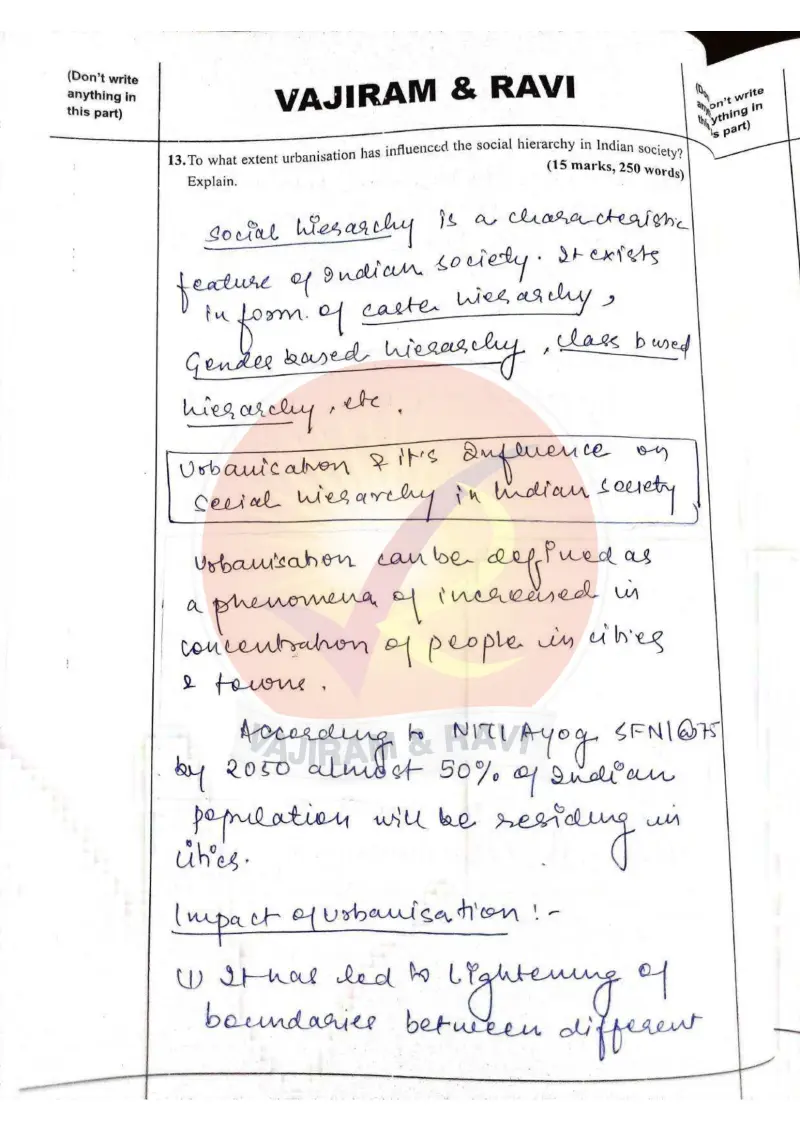 (Don't write
anything in
this part)
VAJIRAM & RAVI
on't write
ything in
s part)
13. To what extent urbanisation has influenced the social hierarchy in Indian society?
Explain.
(15 marks, 250 words)
Social hierarchy is a characteristic
feature of Indian society. It exists
in form of caste hierarchy,
Gender based hierarchy, class based
hierarchy, etc.
Urbanisation & it's Influence on
Social hierarchy in Indian society
Urbanisation can be defined as
a phenomena of increased in
concentration of people in cities
& towns.
According to NITI Ayog SFNI@75
by 2050 almost 50% of Indian
population will be residing in
cities.
Impact of urbanisation :-
(1) It has led to lightening of
boundaries between different
VAJIRAM & RAVI